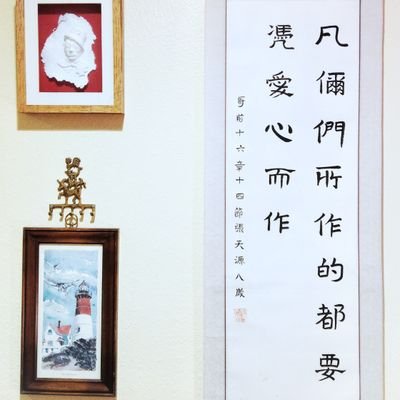 凡你們所作的都要
憑愛心而作
哥前十六章十四節張天源八歲